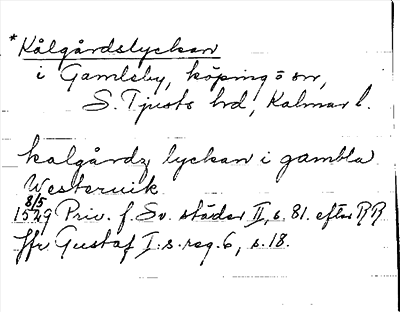 *Kålgårdslyckan
i Gamleby, köping o sn,
S. Tjusts hd, Kalmar l.
kalgårdz lyckan i gambla
Westeruik
8/5
1529 Priv. f. Sv. städer II, s. 81. efter RR
Jfr Gustaf I:s reg. 6, s. 18.